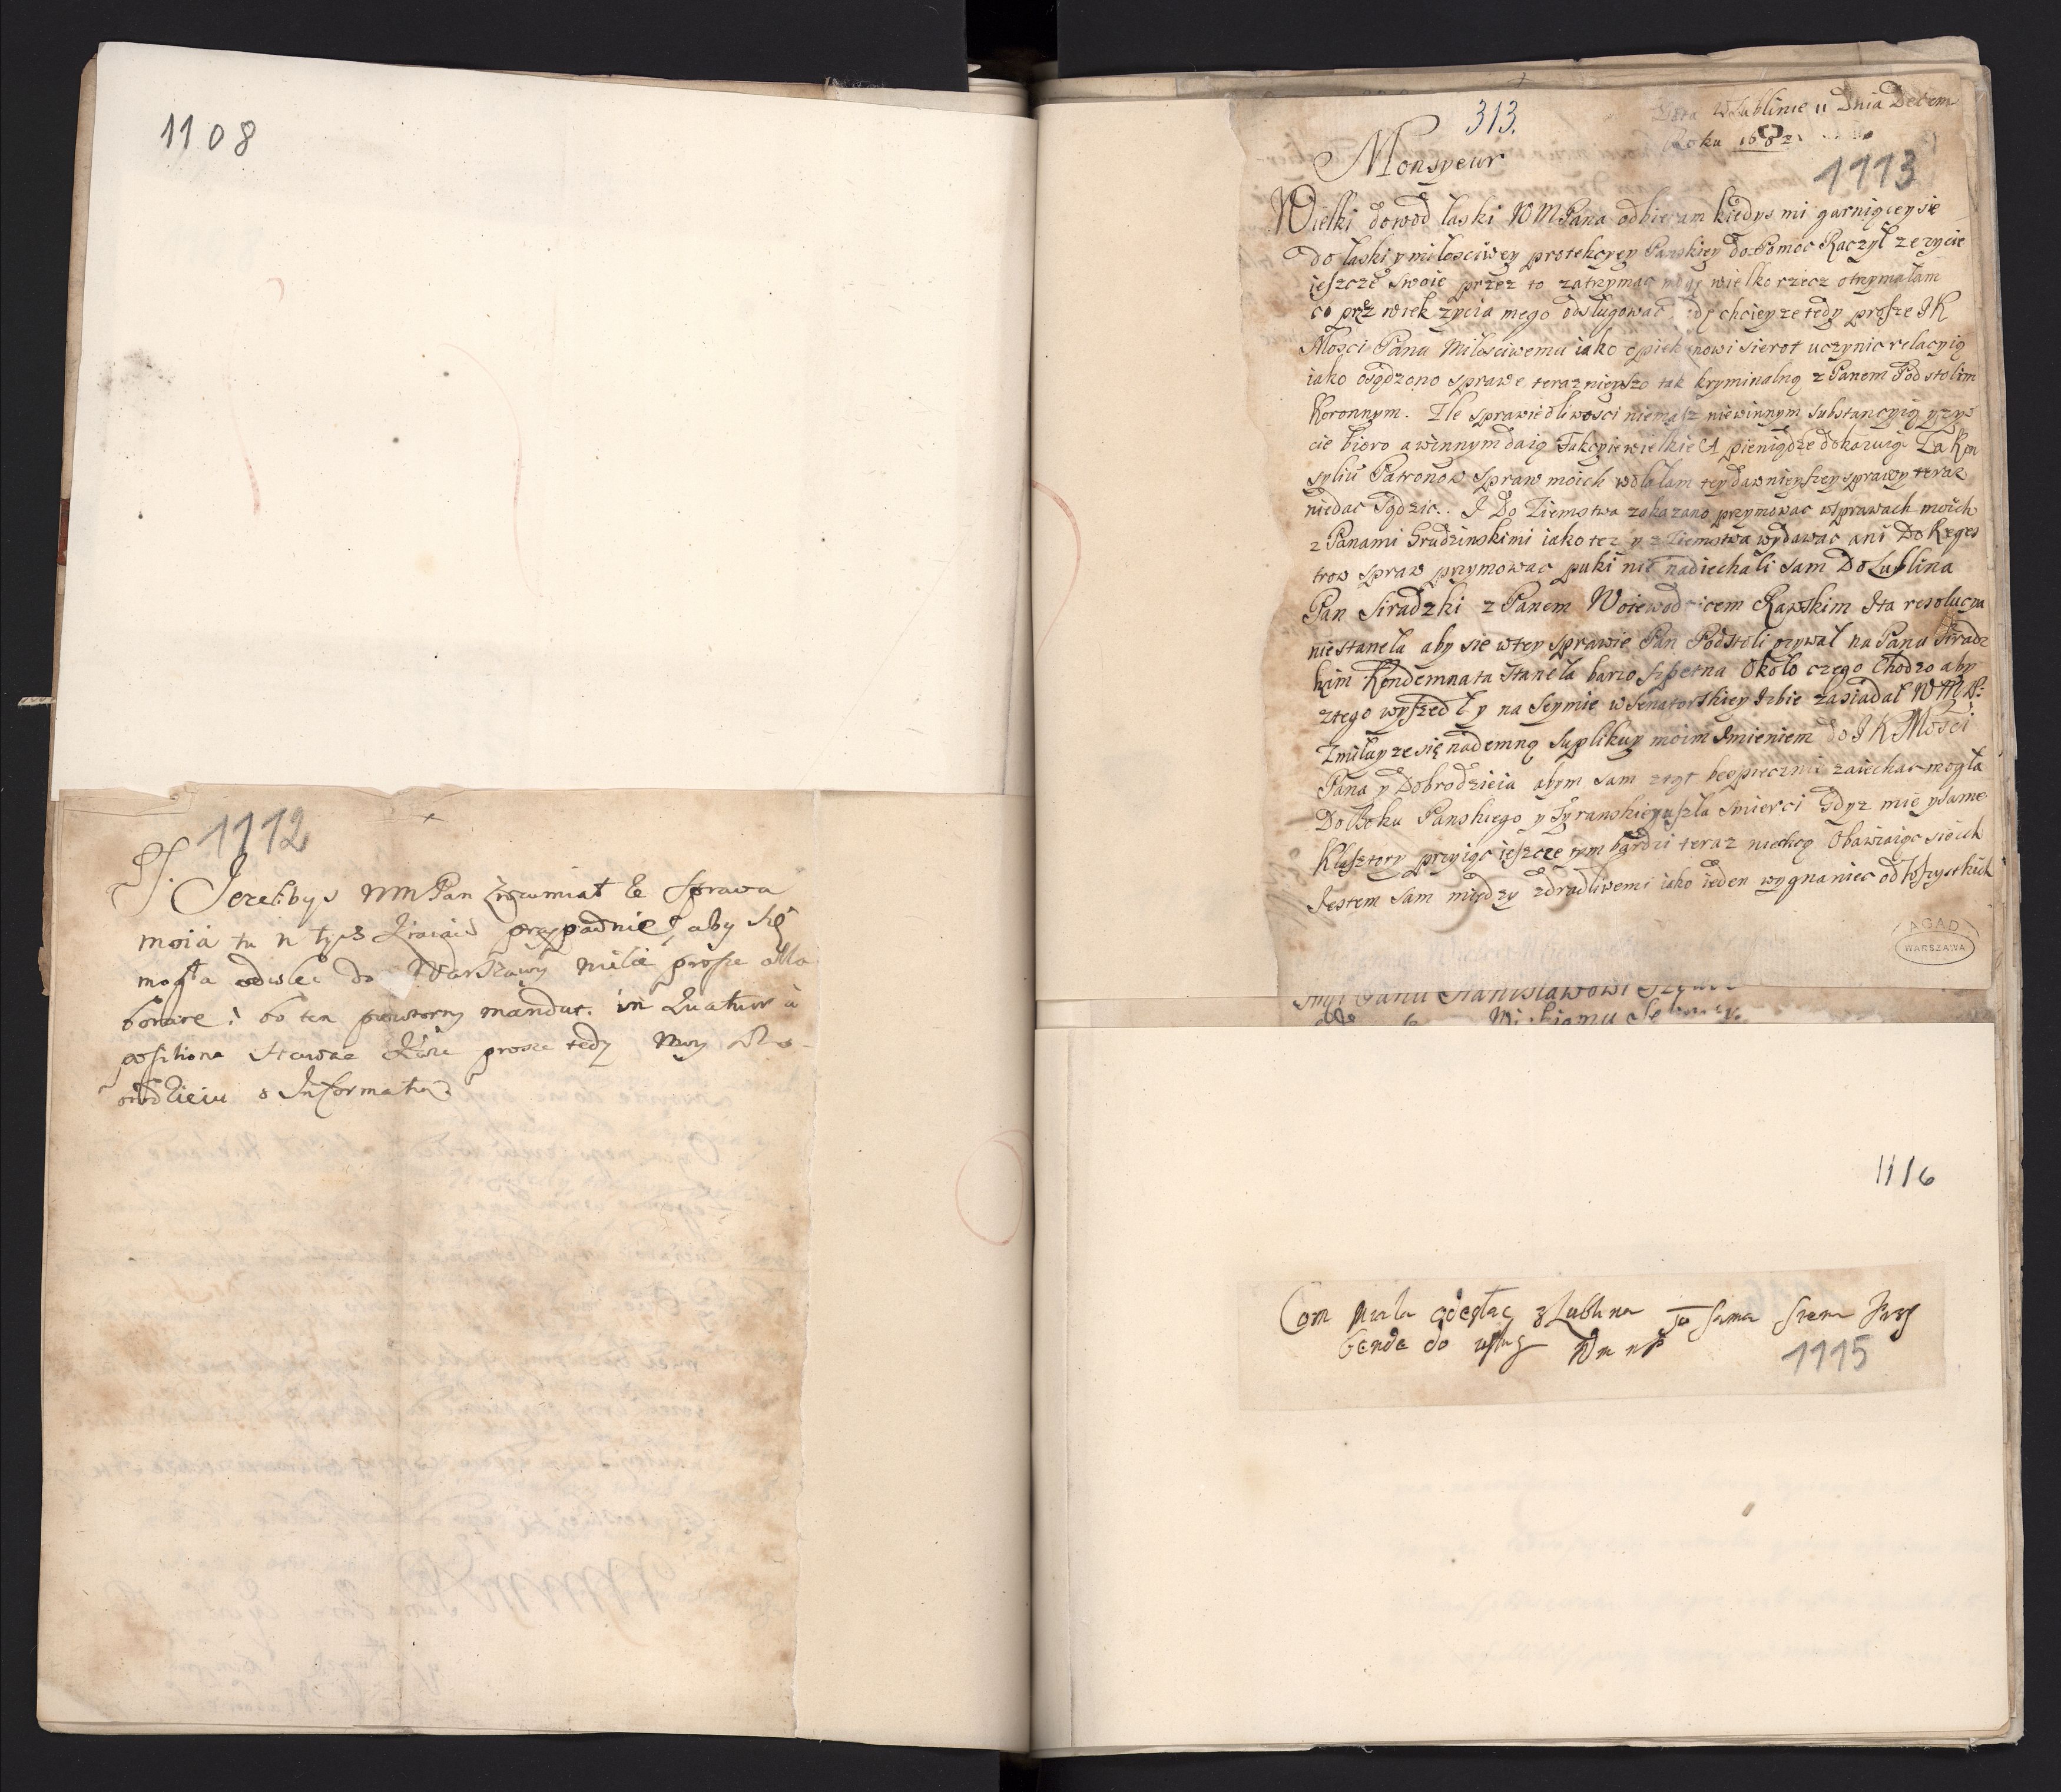 1108
1112
Jezelibys WM Pan zrozumiał że sprawa
moia tu w tych przypadnie, aby się
mogła odwlec do Warszawy milie prosze alla
borare; bo ten powtorny mandat. in
positione stawac prosze tedy Moy Do
brodzieiu o Informatią
313.
Data w Lublinie 11 Dnia Decem
Roku 1682
1113
Monsyeur
Wielki dowod łaski WMPana odbieram kiedys mi garnigcey się
do łaski y miłosciwey protekcyey Panskiey do Pomoc Raczył ze zycie
ieszcze swoie przez to zatrzymac mogę wielko rzecz otrzymałam
co prze wiek zycia mego odsługowac chciey ze tedy prosze JK
Mosci Panu Miłosciwemu iako opiekunowi sierot uczynic relacyią
iako osądzono sprawe teraznieyszo tak kryminalną z Panem Podstolim
Koronnym. Zle sprawiedliwosci niemasz niewinnym substancyią y zy
cie bioro a winnym daią Fakcyie wielkie A pieniądze dokazuią Za Kon
syliu Patronow spraw moich wolałam tey dawnieyszey sprawy teraz
niedac sądzic. I Do Ziemstwa zakazano przymowac w sprawach moich
z Panami Grudzinskimi iako tez y z Ziemstwa wydawac ani Do Reges
trow spraw przymowac puki nie nadiechali sam Do Lublina
Pan Siradzki z Panem Woiewodzicem Rawskim Ita resolucya
nie staneła aby sie w tey sprawie Pan Podstoli ozywał na Panu Siradz
kim Kondemnata staneła barzo szpetna Około czego Chodzo aby
z tego wyszedł y na Seymie w Senatorskiey Izbie zasiadał WMP:
Zmiłuy ze się nademną suplikuy moim Imieniem do JK Mosci
Pana y Dobrodzieia abym sam ztąt bespiecznie zaiechac mogła
Do Boku Panskiego y Tyranskiey uszła smierci Gdyz mię y same
Klasztory przyiąc ieszcze tym bardzi teraz niechcą Obawiaiąc się ich
Jestem sam między zdradliwemi iako ieden wygnaniec od Wszystkich
AGAD
WARSZAWA
Panu Stanisławowi
1116
Com miala odesłac z Lublina to sama
bende do usług
1115